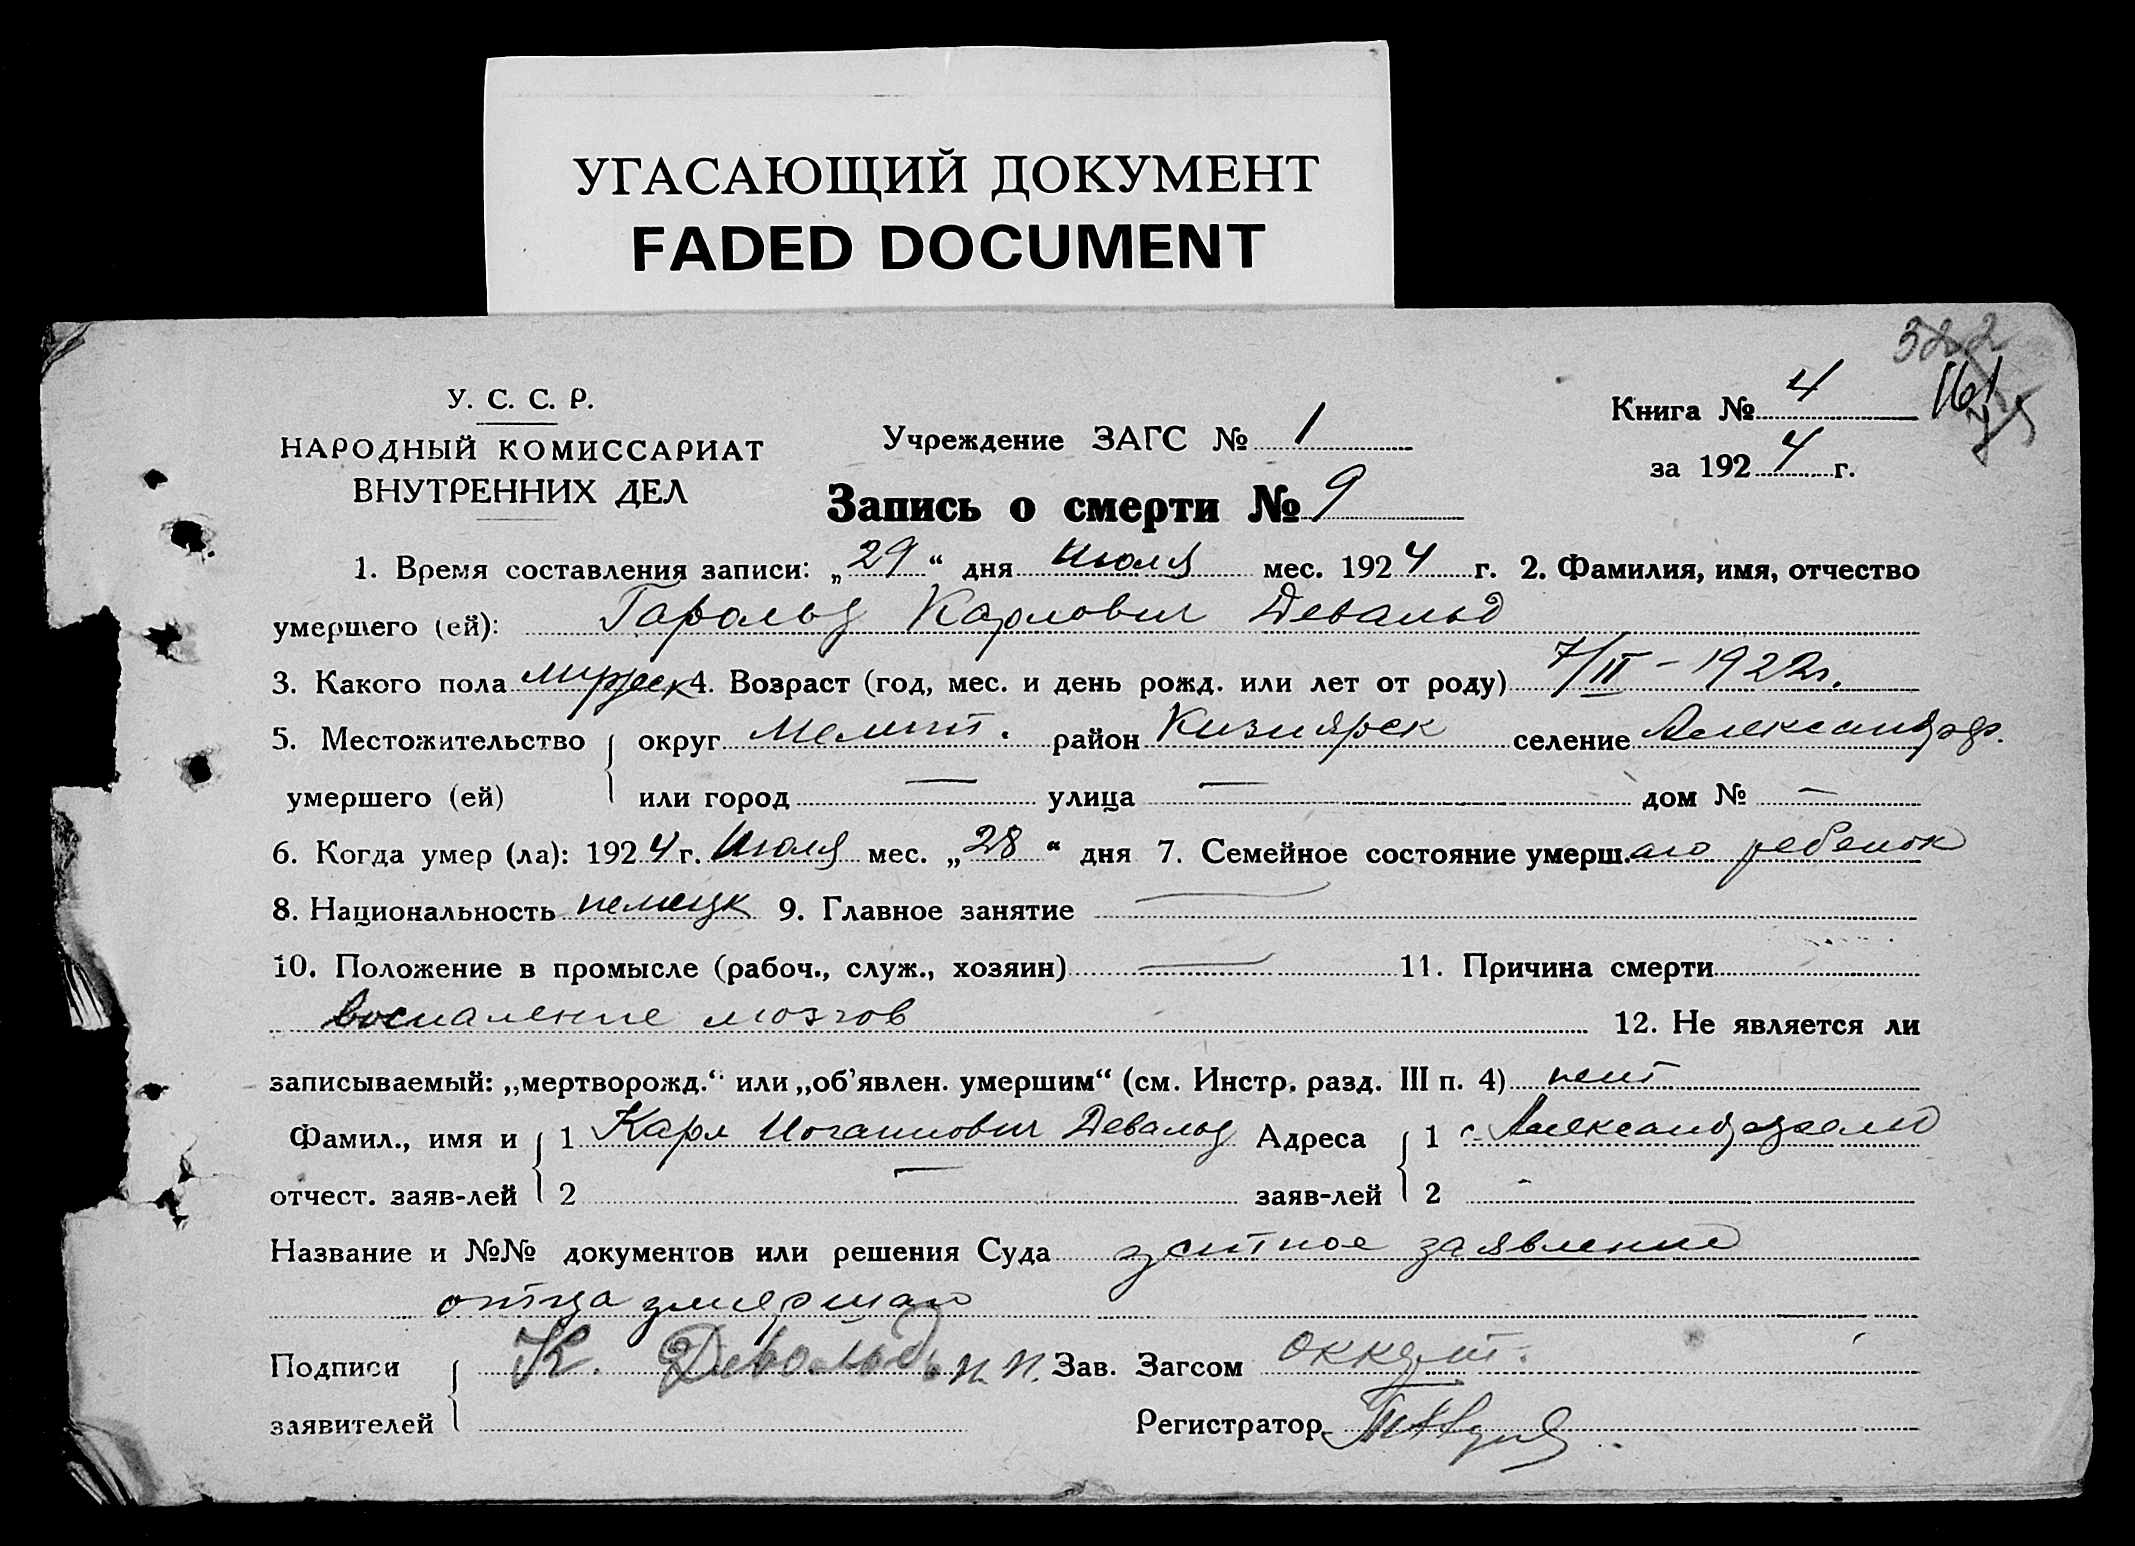 УГАСАЮЩИЙ ДОКУМЕНТ
FADED DOCUMENT
322
161
У. С. С. Р.
НАРОДНЫЙ КОМИССАРИАТ
ВНУТРЕННИХ ДЕЛ
Учреждение ЗАГС № 1
Книга № 4
за 1924 г.
Запись о смерти № 9
1. Время составления записи: „29“ дня Июля мес. 1924 г. 2. Фамилия, имя, отчество
умершего (ей): Гарольд Карлович Девальд
3. Какого пола мужеск 4. Возраст (год, мес. и день рожд. или лет от роду) 7/II – 1922г.
5. Местожительство округ Мелит. район Кизиярск селение Александрф.
умершего (ей) или город — улица — дом № —
6. Когда умер (ла): 1924 г. Июля мес. „28“ дня 7. Семейное состояние умерш.аго ребенок
8. Национальность немецк 9. Главное занятие —
10. Положение в промысле (рабоч., служ., хозяин) — 11. Причина смерти
воспаление мозгов 12. Не является ли
записываемый: „мертворожд.“ или „об’явлен. умершим“ (см. Инстр. разд. III п. 4) нет
Фамил., имя и 1 Карл Иоганнович Девальд Адреса 1 с.
отчест. заяв-лей 2 — заяв-лей 2 -
Название и №№ документов или решения Суда устное заявление
отца умершаго
Подписи К. Девальдъ Зав. Загсом
заявителей Регистратор